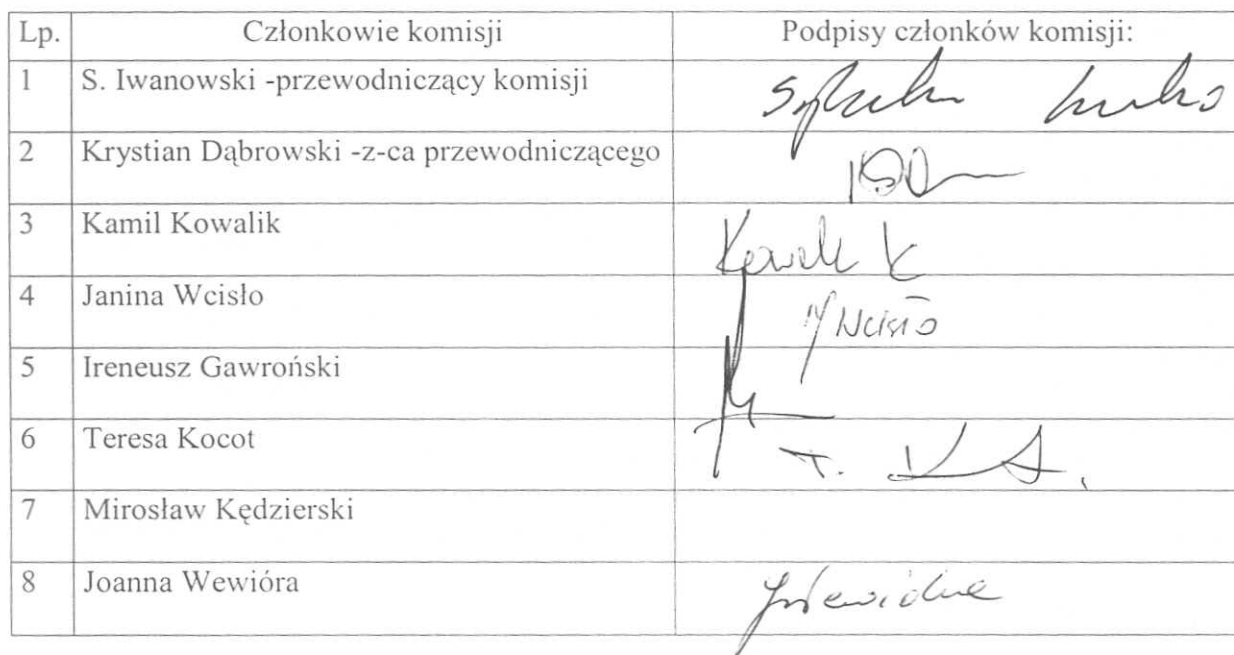 Lp. Członkowie komisji Podpisy członków komisji:
1 S. Iwanowski -przewodniczący komisji
2 Krystian Dąbrowski -z-ca przewodniczącego
3 Kamil Kowalik
4 Janina Wcisło Wcisło
5 Ireneusz Gawroński
6 Teresa Kocot T.
7 Mirosław Kędzierski
8 Joanna Wewióra